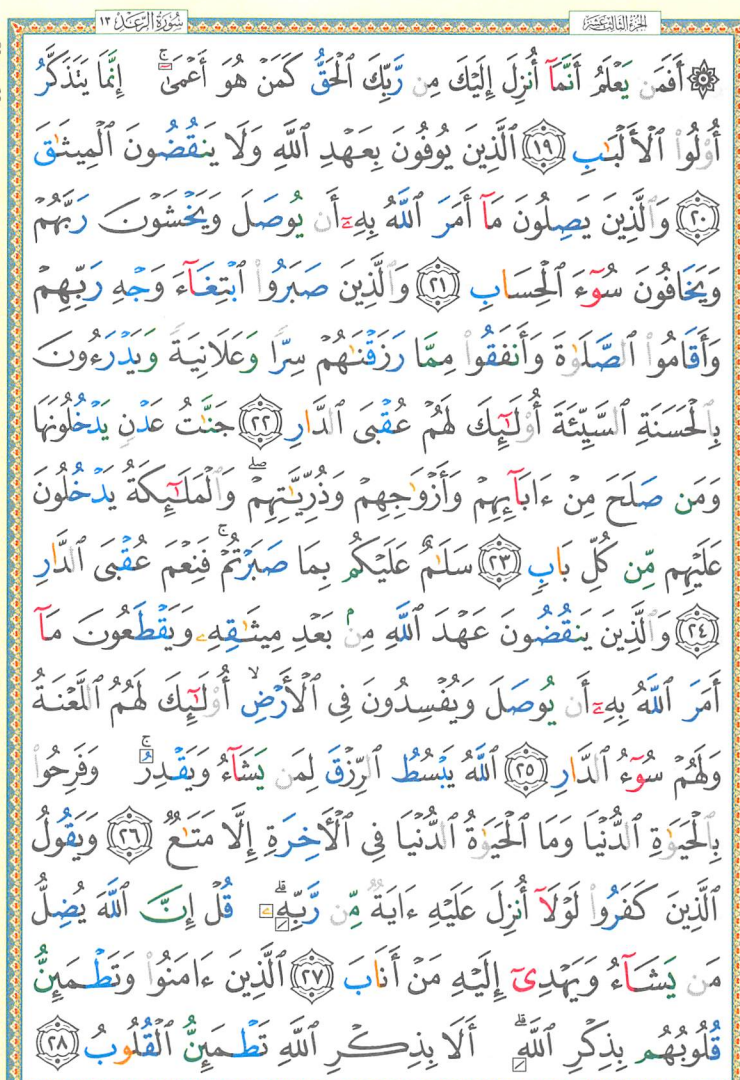 الجزء الثالث عشر
سُورَةُ الرَّعْدِ ١٣
۞ أَفَمَن يَعْلَمُ أَنَّمَآ أُنزِلَ إِلَيْكَ مِن رَّبِّكَ ٱلْحَقُّ كَمَنْ هُوَ أَعْمَىٰٓ ۚ إِنَّمَا يَتَذَكَّرُ
أُو۟لُوا۟ ٱلْأَلْبَٰبِ ١٩ ٱلَّذِينَ يُوفُونَ بِعَهْدِ ٱللَّهِ وَلَا يَنقُضُونَ ٱلْمِيثَٰقَ
٢٠ وَٱلَّذِينَ يَصِلُونَ مَآ أَمَرَ ٱللَّهُ بِهِۦٓ أَن يُوصَلَ وَيَخْشَوْنَ رَبَّهُمْ
وَيَخَافُونَ سُوٓءَ ٱلْحِسَابِ ٢١ وَٱلَّذِينَ صَبَرُوا۟ ٱبْتِغَآءَ وَجْهِ رَبِّهِمْ
وَأَقَامُوا۟ ٱلصَّلَوٰةَ وَأَنفَقُوا۟ مِمَّا رَزَقْنَٰهُمْ سِرًّا وَعَلَانِيَةً وَيَدْرَءُونَ
بِٱلْحَسَنَةِ ٱلسَّيِّئَةَ أُو۟لَٰٓئِكَ لَهُمْ عُقْبَى ٱلدَّارِ ٢٢ جَنَّٰتُ عَدْنٍ يَدْخُلُونَهَا
وَمَن صَلَحَ مِنْ ءَابَآئِهِمْ وَأَزْوَٰجِهِمْ وَذُرِّيَّٰتِهِمْ ۖ وَٱلْمَلَٰٓئِكَةُ يَدْخُلُونَ
عَلَيْهِم مِّن كُلِّ بَابٍ ٢٣ سَلَٰمٌ عَلَيْكُم بِمَا صَبَرْتُمْ ۚ فَنِعْمَ عُقْبَى ٱلدَّارِ
٢٤ وَٱلَّذِينَ يَنقُضُونَ عَهْدَ ٱللَّهِ مِنۢ بَعْدِ مِيثَٰقِهِۦ وَيَقْطَعُونَ مَآ
أَمَرَ ٱللَّهُ بِهِۦٓ أَن يُوصَلَ وَيُفْسِدُونَ فِى ٱلْأَرْضِ ۙ أُو۟لَٰٓئِكَ لَهُمُ ٱللَّعْنَةُ
وَلَهُمْ سُوٓءُ ٱلدَّارِ ٢٥ ٱللَّهُ يَبْسُطُ ٱلرِّزْقَ لِمَن يَشَآءُ وَيَقْدِرُ ۚ وَفَرِحُوا۟
بِٱلْحَيَوٰةِ ٱلدُّنْيَا وَمَا ٱلْحَيَوٰةُ ٱلدُّنْيَا فِى ٱلْأَخِرَةِ إِلَّا مَتَٰعٌ ٢٦ وَيَقُولُ
ٱلَّذِينَ كَفَرُوا۟ لَوْلَآ أُنزِلَ عَلَيْهِ ءَايَةٌ مِّن رَّبِّهِۦ ۗ قُلْ إِنَّ ٱللَّهَ يُضِلُّ
مَن يَشَآءُ وَيَهْدِىٓ إِلَيْهِ مَنْ أَنَابَ ٢٧ ٱلَّذِينَ ءَامَنُوا۟ وَتَطْمَئِنُّ
قُلُوبُهُم بِذِكْرِ ٱللَّهِ ۗ أَلَا بِذِكْرِ ٱللَّهِ تَطْمَئِنُّ ٱلْقُلُوبُ ٢٨